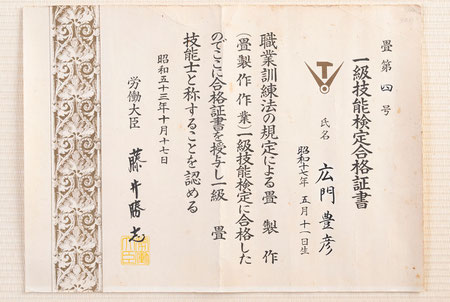 畳第四号
一級技能検定合格証書
氏名 広門豊彦
昭和十七年五月十一日生
職業訓練法の規定による畳製作
(畳製作作業)一級技能検定に合格した
のでここに合格証書を授与し一級畳
技能士と称することを認める
昭和五十三年十月十七日
労働大臣 藤井勝志